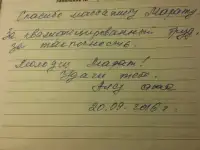 Спасибо массажисту Марату
За квалифицированный труд.
За тактичность.
Молодец Марат!
Удачи тебе.
20.09.2016г